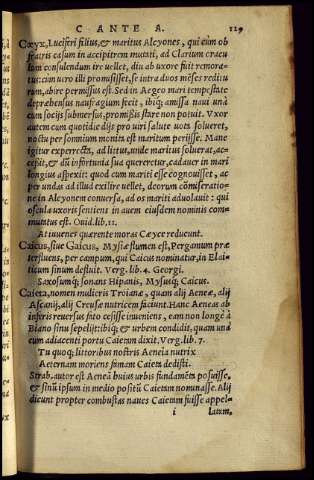 C ANTE A. 129
Cœyx, Luciferi filius, & maritus Alcyones, qui cùm ob
fratris casum in accipitrem mutati, ad Clarium oracu
lum consulendum ire vellet, diu ab uxore fuit remora-
tus: cùm vero illi promisisset, se intra duos mẽses reditu
rum, abire permissus est. Sed in Aegeo mari tempestate
deprehensus naufragium fecit, ibiq́; amissa naui unà
cum socijs submersus, promissis stare non potuit. Vxor
autem cum quotidie dijs pro viri salute vota solueret,
noctu per somnium monita est maritum perijsse. Mane
igitur experrecta, ad littus, unde maritus soluerat, ac-
cessit, & dũ infortunia sua quereretur, cadauer in mari
longius aspexit: quod cum mariti esse cognouisset, ac
per undas ad illud exilire vellet, deorum cõmiseratio-
ne in Alcyonem conuersa, ad os mariti aduolauit: qui
oscula uxoris sentiens in auem eiusdem nominis com-
mutatus est. Ouid. lib. 11.
At iuuenes quærente moras Cæyce reducunt.
Caicus, siue Gaicus, Mysiæ flumen est, Pergamum præ
terfluens, per campum, qui Caicus nominatur, in Elai-
ticum sinum defluit. Verg. lib. 4. Georgi.
Saxosumq́; sonans Hipanis, Mysusq́; Caicus.
Caieta, nomen mulieris Troianæ, quam alij Aeneæ, alij
Ascanij, alij Creusæ nutricem faciunt. Hanc Aeneas ab
inferis reuersus fato cessisse inueniens, eam non longè à
Biano sinu sepelijt: ibiq́; & urbem condidit, quam unà
cum adiacenti portu Caietam dixit. Verg. lib. 7.
Tu quoq́; littoribus nostris Aeneia nutrix
Aeternam moriens famam Caieta dedisti.
Strab. autor est Aeneã huius urbis fundamẽta posuisse,
& sinũ ipsum in medio positũ Caietam nominasse. Alij
dicunt propter combustas naues Caietam fuisse appel-
i latam.